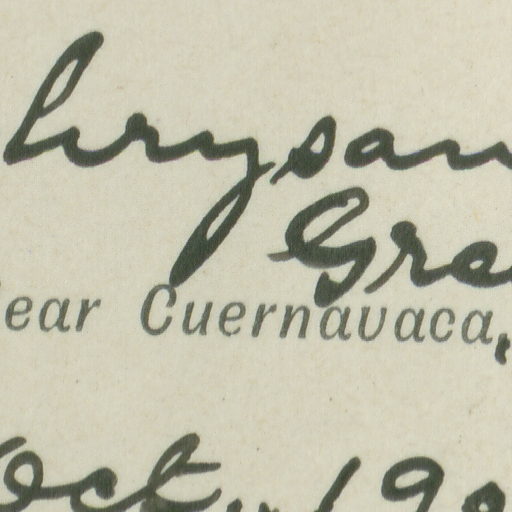 hrysan
Gre
ear Cuernavaca,
Oct. 190